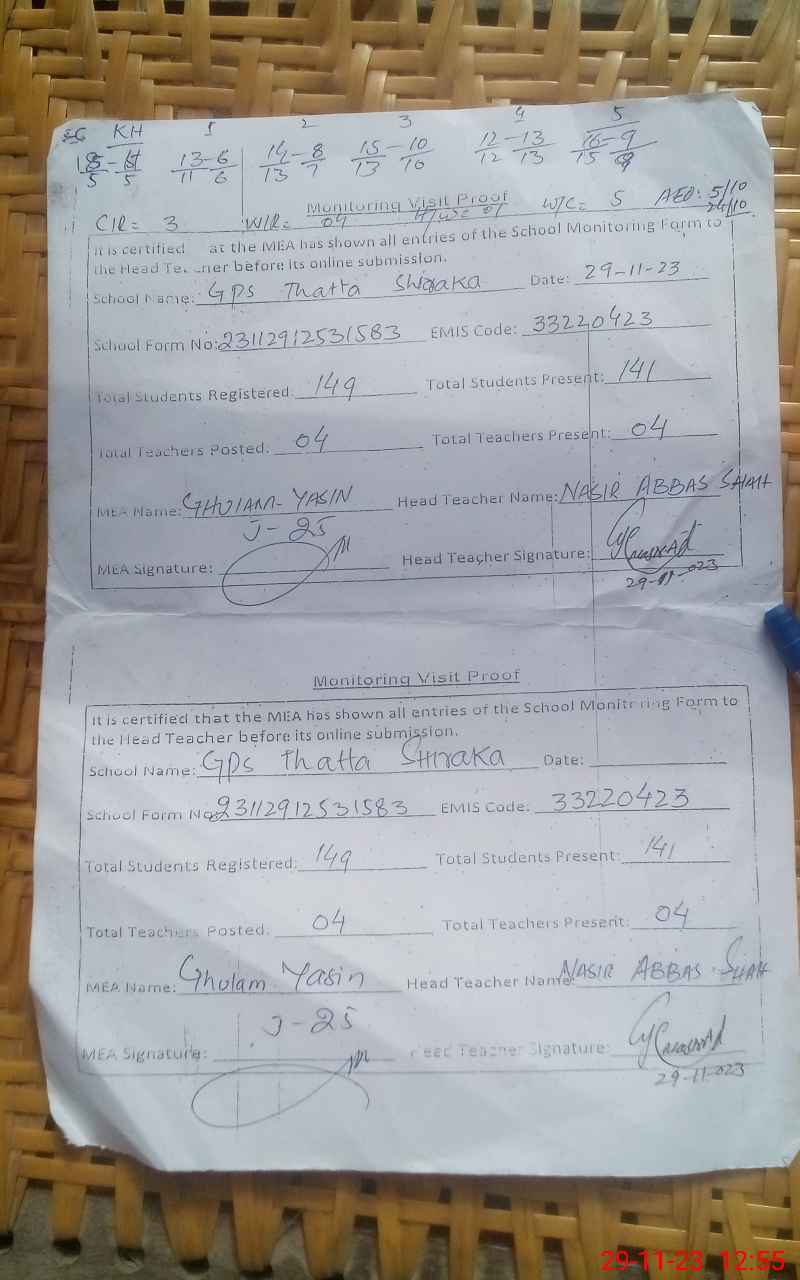 KH 1 2 3 4 5
5 5 13-6 14-8 15-10 12-13 16-9
11 6 13 7 13 10 12 13 15
Monitoring Visit Proof
CIR= 3 W/R= 04 W/C= 5 AEO: 5/10
24/10
It is certified at the MEA has shown all entries of the School Monitoring Form to
the Head Teacher before its online submission.
School Name: GPS Thatta Shiraka Date: 29-11-23
School Form No: 23112912531583 EMIS Code: 33220423
Total Students Registered: 149 Total Students Present: 141
Total Teachers Posted: 04 Total Teachers Present: 04
MEA Name: GHULAM YASIN Head Teacher Name: NASIR ABBAS SHAH
J-25
MEA Signature: Head Teacher Signature:
29-11-023
Monitoring Visit Proof
It is certified that the MEA has shown all entries of the School Monitoring Form to
the Head Teacher before its online submission.
School Name: GPS Thatta SHiraka Date:
School Form No 23112912531583 EMIS Code: 33220423
Total Students Registered: 149 Total Students Present: 141
Total Teachers Posted: 04 Total Teachers Present: 04
MEA Name: Ghulam Yasin Head Teacher Name: NASIR ABBAS SHAH
J-25
MEA Signature: Head Teacher Signature:
29-11-023
29-11-23 12:55